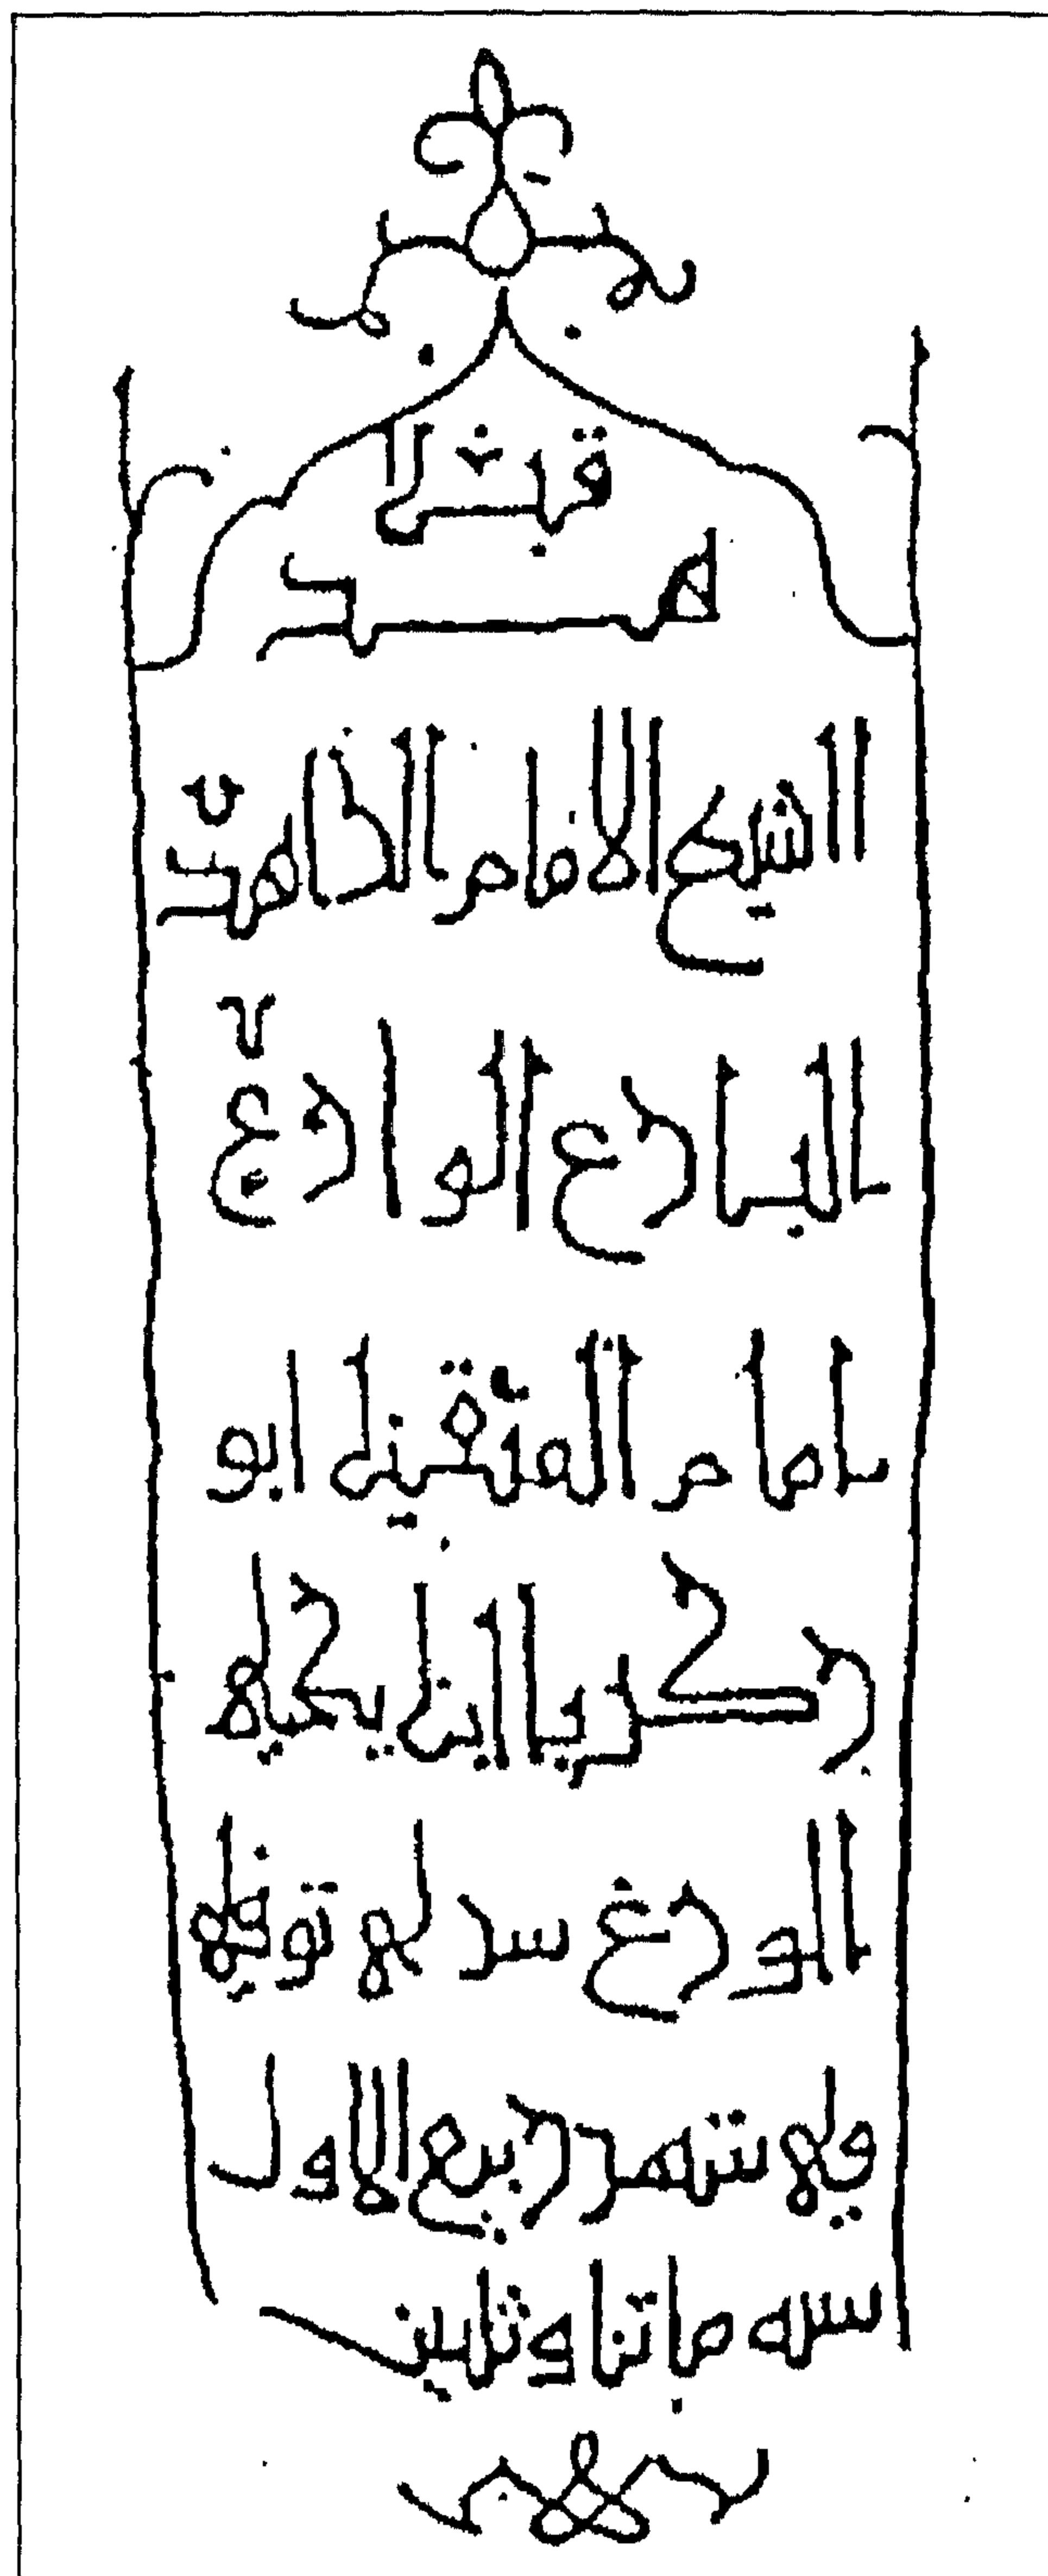 قبر
هذا
الشيخ الامام الزاهد
البارع الوارع
امام المتقين ابو
زكريا ابن يحيى
الورع توفى
فى شهر ربيع الاول
سنه وثلثين